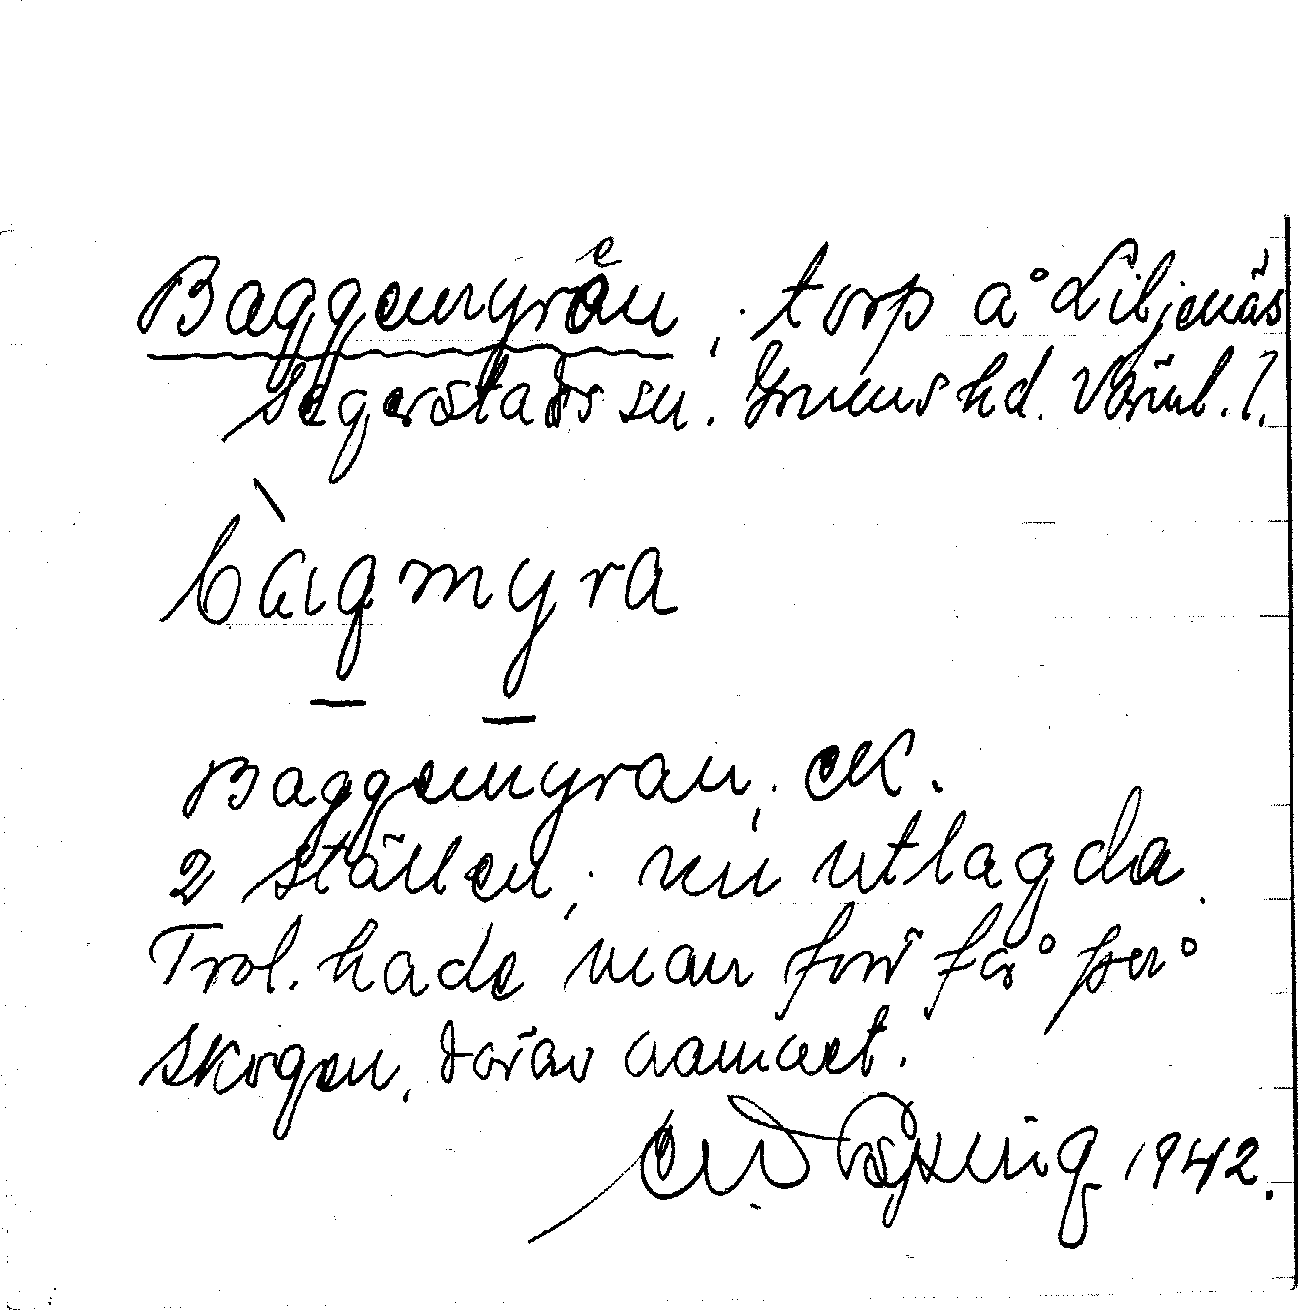 Baggemyrån, torp å Liljenäs
Segerstads sn. Grums hd. Värml. l.
bàgmyra
Baggemyran, ek.
2 ställen, nu utlagda.
Trol. hade man förr får på
skogen, därav namnet.
1942.